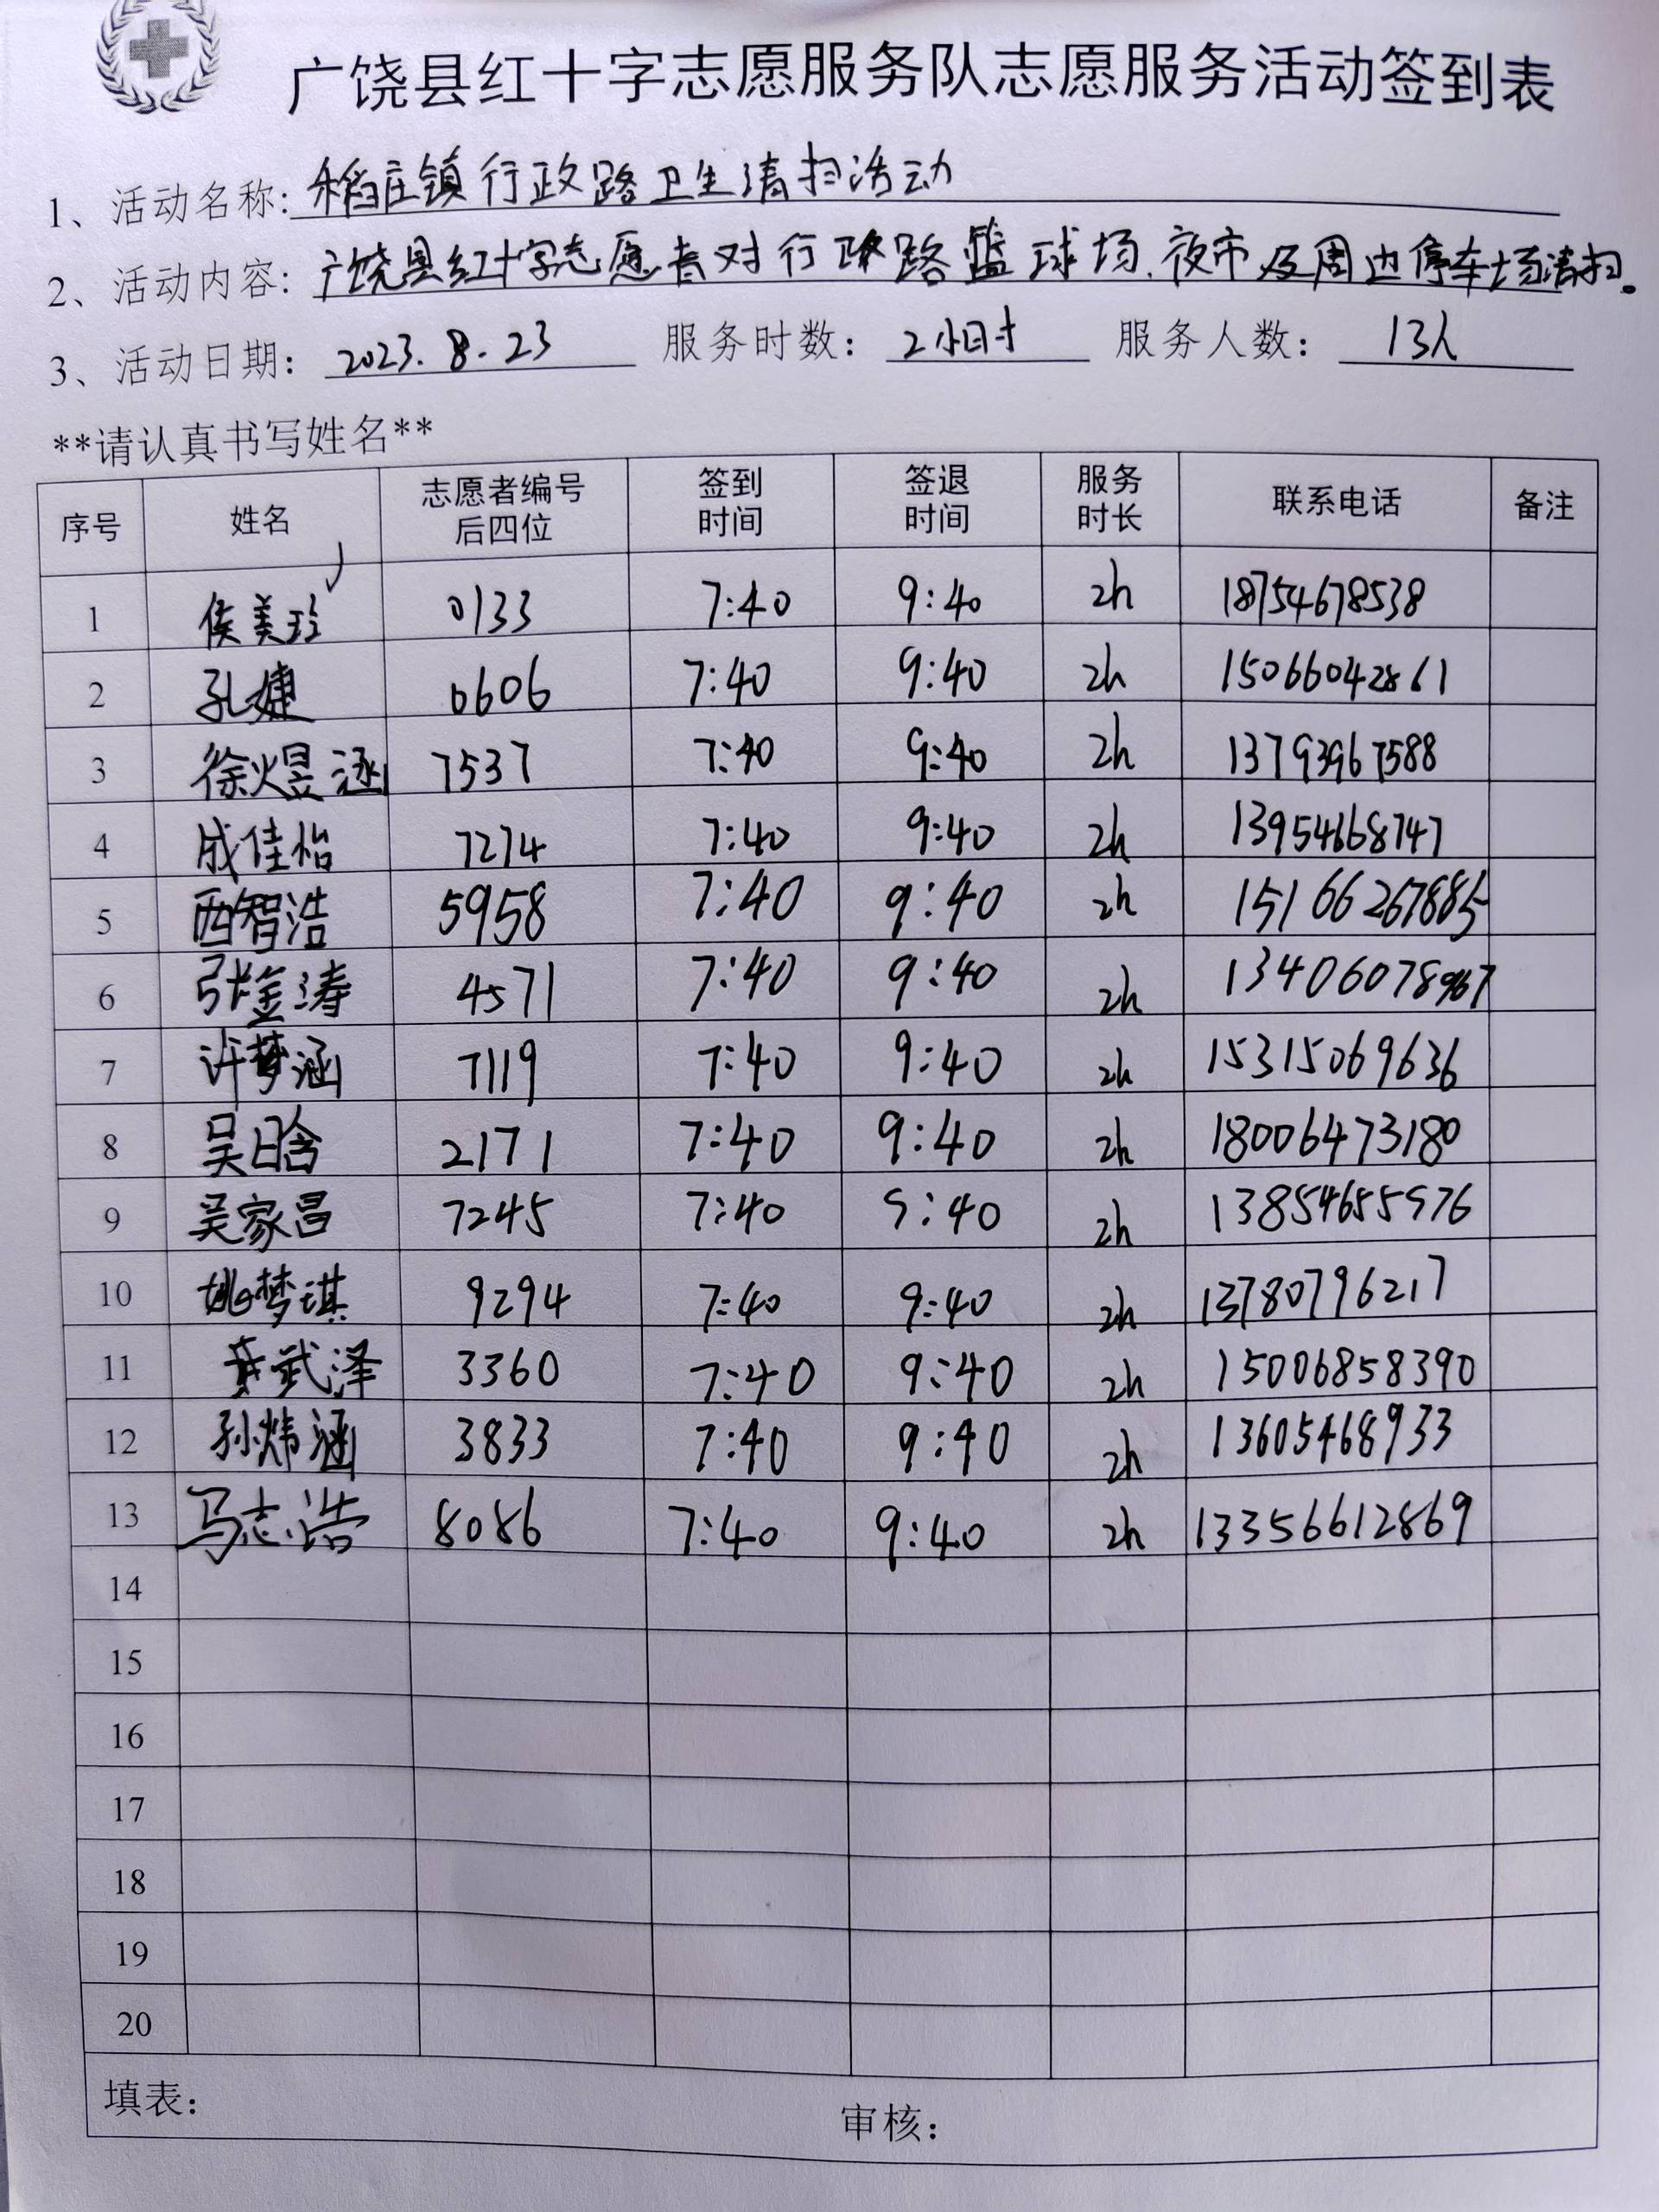 广饶县红十字志愿服务队志愿服务活动签到表
1、活动名称: 稻庄镇行政路卫生清扫活动
2、活动内容: 广饶县红十字志愿者对行政路篮球场、夜市及周边停车场清扫。
3、活动日期: 2023.8.23 服务时数: 2小时 服务人数: 13人
**请认真书写姓名**
序号 姓名 志愿者编号后四位 签到时间 签退时间 服务时长 联系电话 备注
1 侯美玲 0133 7:40 9:40 2h 18754678538
2 孔婕 0606 7:40 9:40 2h 15066042861
3 徐煜涵 7537 7:40 9:40 2h 13793967588
4 成佳怡 7274 7:40 9:40 2h 13954668747
5 西智浩 5958 7:40 9:40 2h 15166267885
6 张金涛 4571 7:40 9:40 2h
7 许梦涵 7119 7:40 9:40 2h 15315069636
8 吴晗 2171 7:40 9:40 2h 18006473180
9 吴家昌 7245 7:40 9:40 2h 13854655976
10 姚梦琪 9294 7:40 9:40 2h 13780796217
11 武泽 3360 7:40 9:40 2h 15006858390
12 孙炜涵 3833 7:40 9:40 2h 13605468933
13 马志浩 8086 7:40 9:40 2h 13356612869
14
15
16
17
18
19
20
填表: 审核: